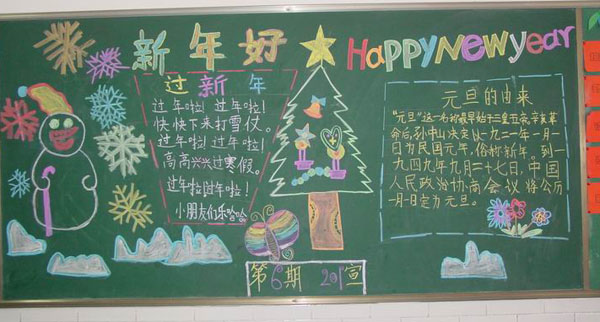 新年好
HAPPY New year
过新年
过年啦！过年啦！
快快下来打雪仗。
过年啦！过年啦！
高高兴兴过寒假。
过年啦过年啦！
小朋友们乐哈哈。
元旦的由来
"元旦"这一名称最早始于三皇五帝，辛亥革
命后，孙中山决定以一九二一年一月一
日为民国元年，俗称新年。到一
九四九年九月二十七日，中国
人民政治协商会议将公历
一月一日定为元旦。
第6期 201宣